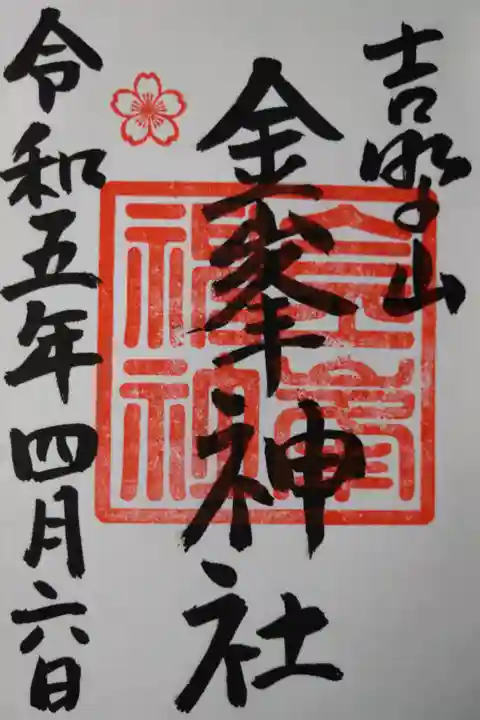 吉野山
金峯神社
令和五年四月六日
金峯
神社